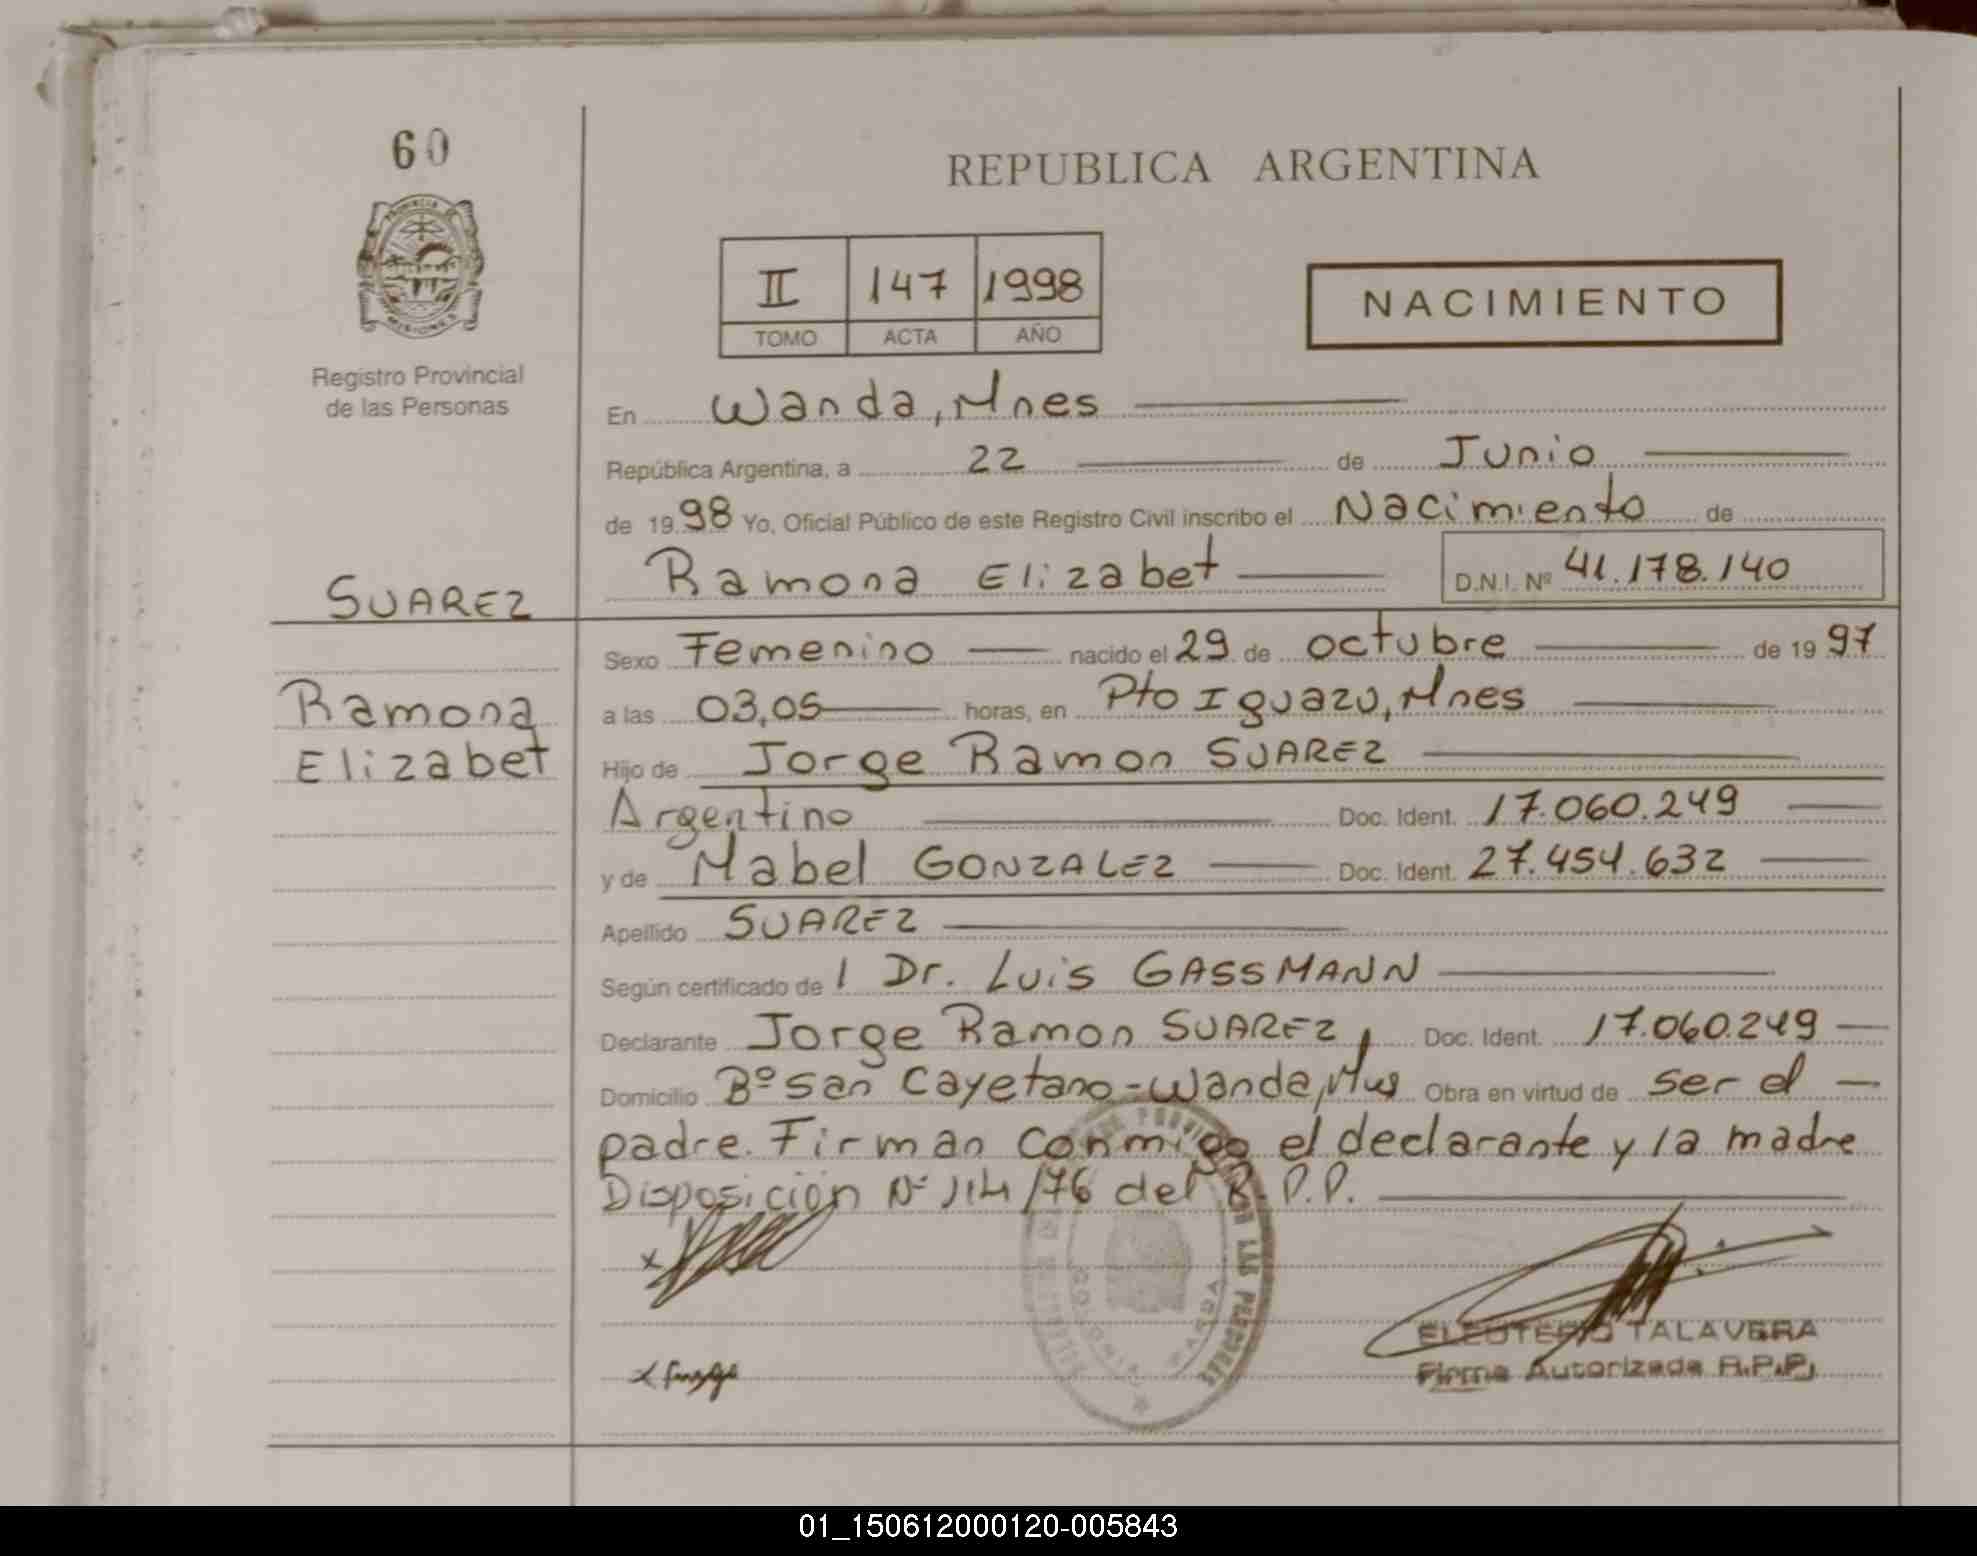 60
PROVINCIA DE
MISIONES
Registro Provincial
de las Personas
REPUBLICA ARGENTINA
II 147 1998
TOMO ACTA AÑO
NACIMIENTO
En Wanda, Mnes
República Argentina, a 22 de Junio
de 1998 Yo, Oficial Público de este Registro Civil inscribo el Nacimiento de
Ramona Elizabet D.N.I. Nº 41.178.140
SUAREZ
Ramona
Elizabet
Sexo Femenino nacido el 29 de octubre de 1997
a las 03,05 horas, en Pto Iguazu, Mnes
Hijo de Jorge Ramon SUAREZ
Argentino Doc. Ident. 17.060.249
y de Mabel GONZALEZ Doc. Ident. 27.454.632
Apellido SUAREZ
Según certificado de l Dr. Luis GASSMANN
Declarante Jorge Ramon SUAREZ, Doc. Ident. 17.060.249
Domicilio Bº San Cayetano-Wanda, Mnes Obra en virtud de ser el
padre. Firman conmigo el declarante y la madre
Disposición Nº 114/76 del R.P.P.
DE LAS PERSONAS
COLONIA WANDA
ELEUTERIO TALAVERA
Firma Autorizada R.P.P.
01_150612000120-005843